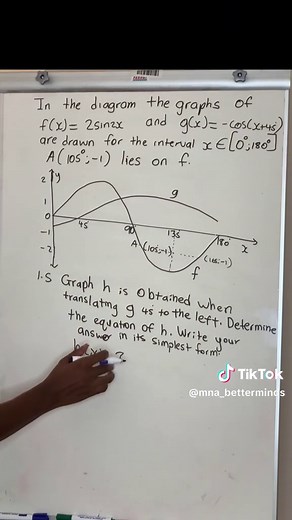 In the diagram the graphs of
f(x)= 2sin2x and g(x)= -cos(x+45°)
are drawn for the interval x∈[0°;180°]
A(105°;-1) lies on f.
y
2
1
0
-1
-2
45
90
135
180°
x
g
A (105;-1)
(165;-1)
f
1.5 Graph h is obtained when
translating g 45 to the left. Determine
the equation of h. Write your
answer in its simplest form.
TikTok
@mna_betterminds